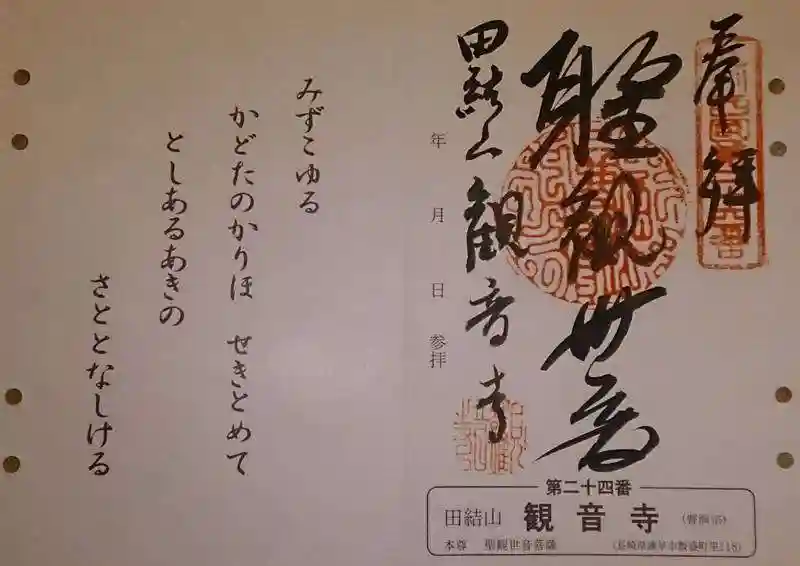 奉拝
聖観世音
田結山観音寺
年 月 日 参拝
第二十四番
田結山 観音寺 (曹洞宗)
本尊 聖観世音菩薩 (長崎県諫早市飯盛町里218)
みずこゆる
かどたのかりほ せきとめて
としあるあきの
さととなしける